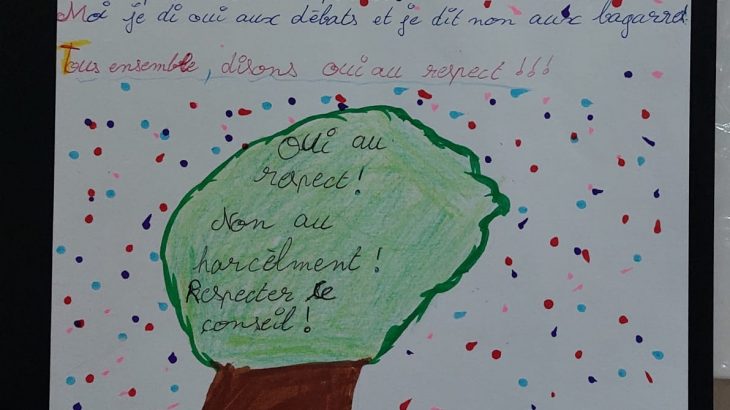 Moi je di oui aux débats et je dit non aux bagarre
Tous ensemble, disons oui au respect !!!
OUi au
respect !
Non au
harcèlment !
Respecter le
conseil !